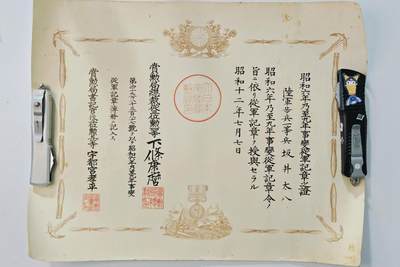 昭和六年乃至九年事變從軍記章之證
陸軍歩兵一等兵 坂井太八
昭和六年乃至九年事變從軍記章令ノ
旨ニ依リ從軍記章ヲ授與セラル
昭和十二年七月七日
賞勲局總裁 下條康麿
號ヲ以テ昭和六年乃至九年事變
從軍記章簿冊ニ記入ス
賞勲局書記官 宇都宮孝平